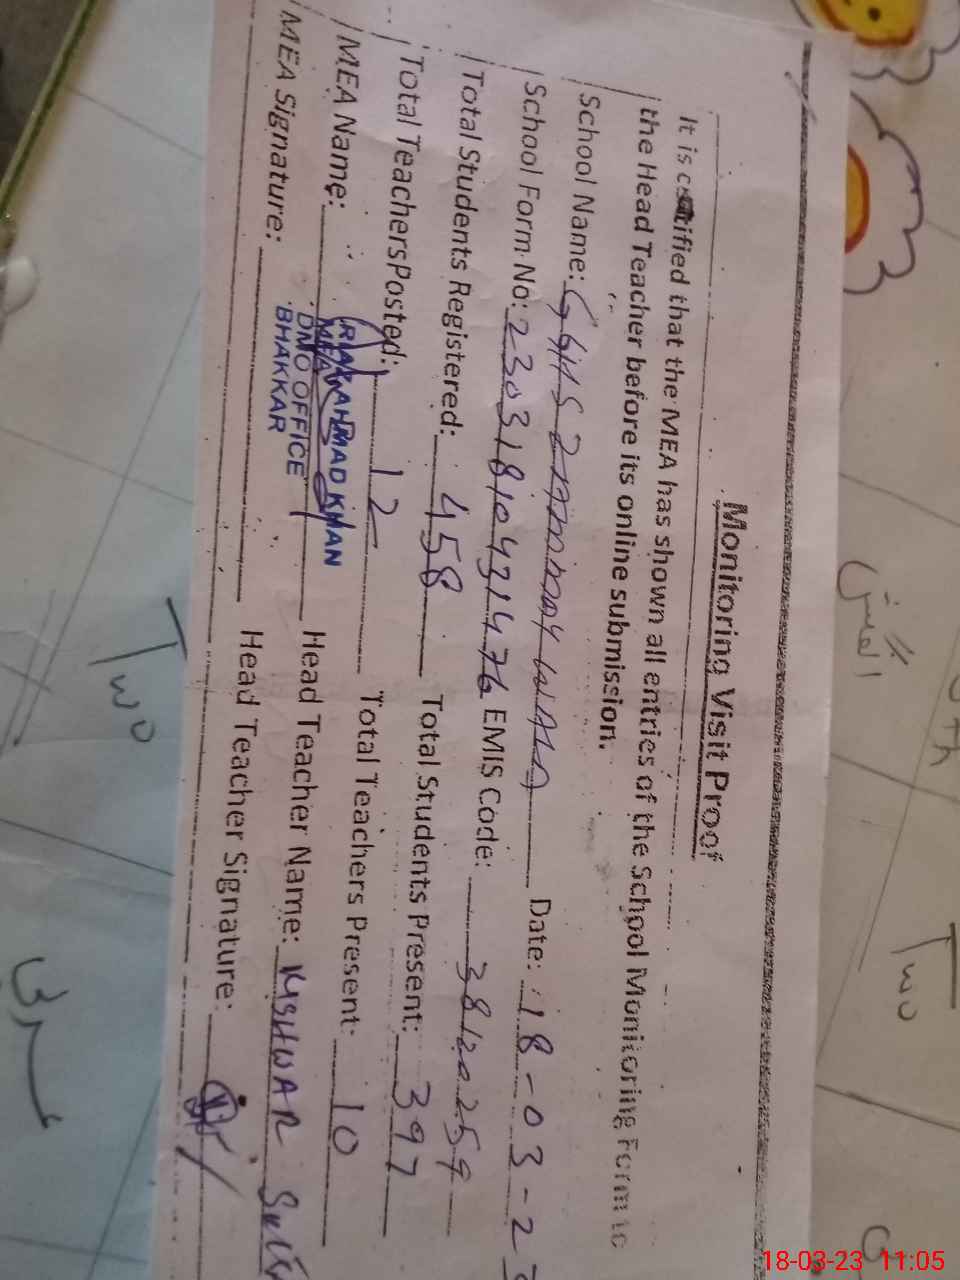 Monitoring Visit Proof
It is certified that the MEA has shown all entries of the School Monitoring Form to
the Head Teacher before its online submission.
School Name: GGHS Date: 18-03-2
School Form No: 23031810431476 EMIS Code: 38120259
Total Students Registered: 458 Total Students Present: 397
Total Teachers Posted: 12 Total Teachers Present: 10
MEA Name: RIAZ AHMAD KHAN Head Teacher Name: KISHWAR
MEA
DMO OFFICE
BHAKKAR
MEA Signature: Head Teacher Signature:
Two
Two
18-03-23 11:05